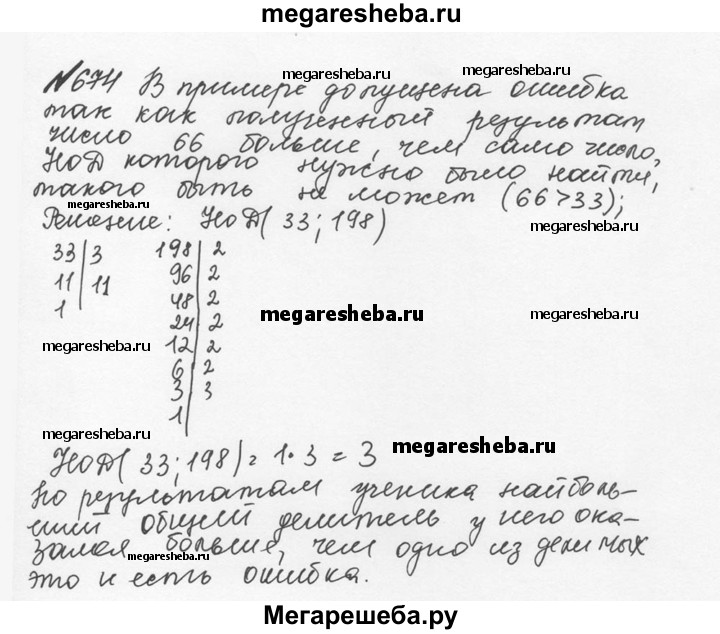 megaresheba.ru
№674 В примере допущена ошибка
megaresheba.ru
megaresheba.ru
так как полученный результат
число 66 больше, чем само число,
НОД которого нужно было найти,
megaresheba.ru
такого быть не может (66>33);
megaresheba.ru
Решение: НОД(33;198)
33|3 198|2
11|11 96|2
1 48|2
megaresheba.ru
megaresheba.ru
24|2
megaresheba.ru
12|2
6|2
3|3
1|
megaresheba.ru
megaresheba.ru
НОД(33;198)=1·3=3
По результатам ученика наиболь-
megaresheba.ru
ший общий делитель у него ока-
зался больше, чем одно из делимых
megaresheba.ru
это и есть ошибка.
megaresheba.ru
Мегарешеба.ру